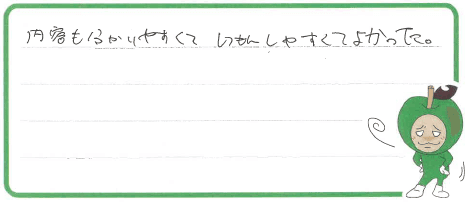 内容もわかりやすくて しつもんしやすくてよかったです。